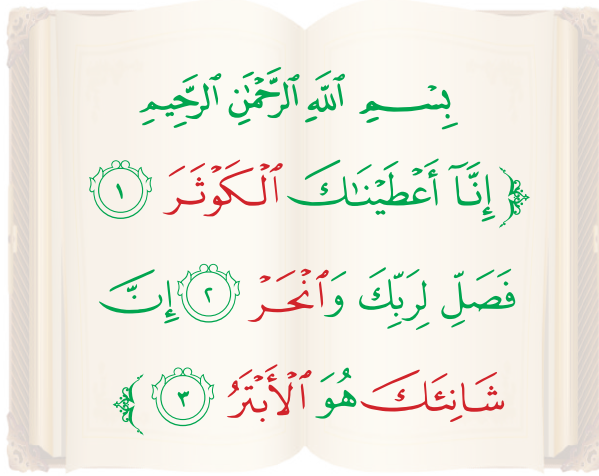 بِسْمِ ٱللَّهِ ٱلرَّحْمَٰنِ ٱلرَّحِيمِ
﴿ إِنَّآ أَعْطَيْنَٰكَ ٱلْكَوْثَرَ ١
فَصَلِّ لِرَبِّكَ وَٱنْحَرْ ٢ إِنَّ
شَانِئَكَ هُوَ ٱلْأَبْتَرُ ٣ ﴾